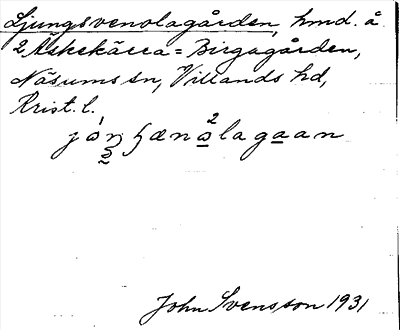 Ljungsvenolagården, hmd. å
2 Äskekärra = Birgagården,
Näsums sn, Villands hd,
Krist. l.
John Svensson 1931